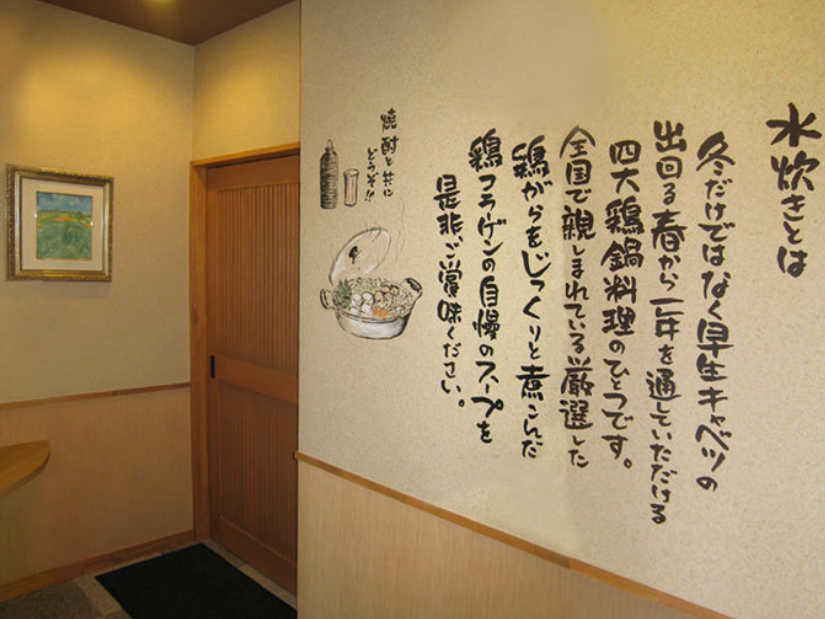 水炊きとは
冬だけではなく早生キャベツの
出回る春から一年を通していただける
四大鶏鍋料理のひとつです。
全国で親しまれている厳選した
鶏がらをじっくりと煮こんだ
鶏コラーゲンの自慢のスープを
是非、ご賞味ください。
焼酎と共に
どうぞ!!